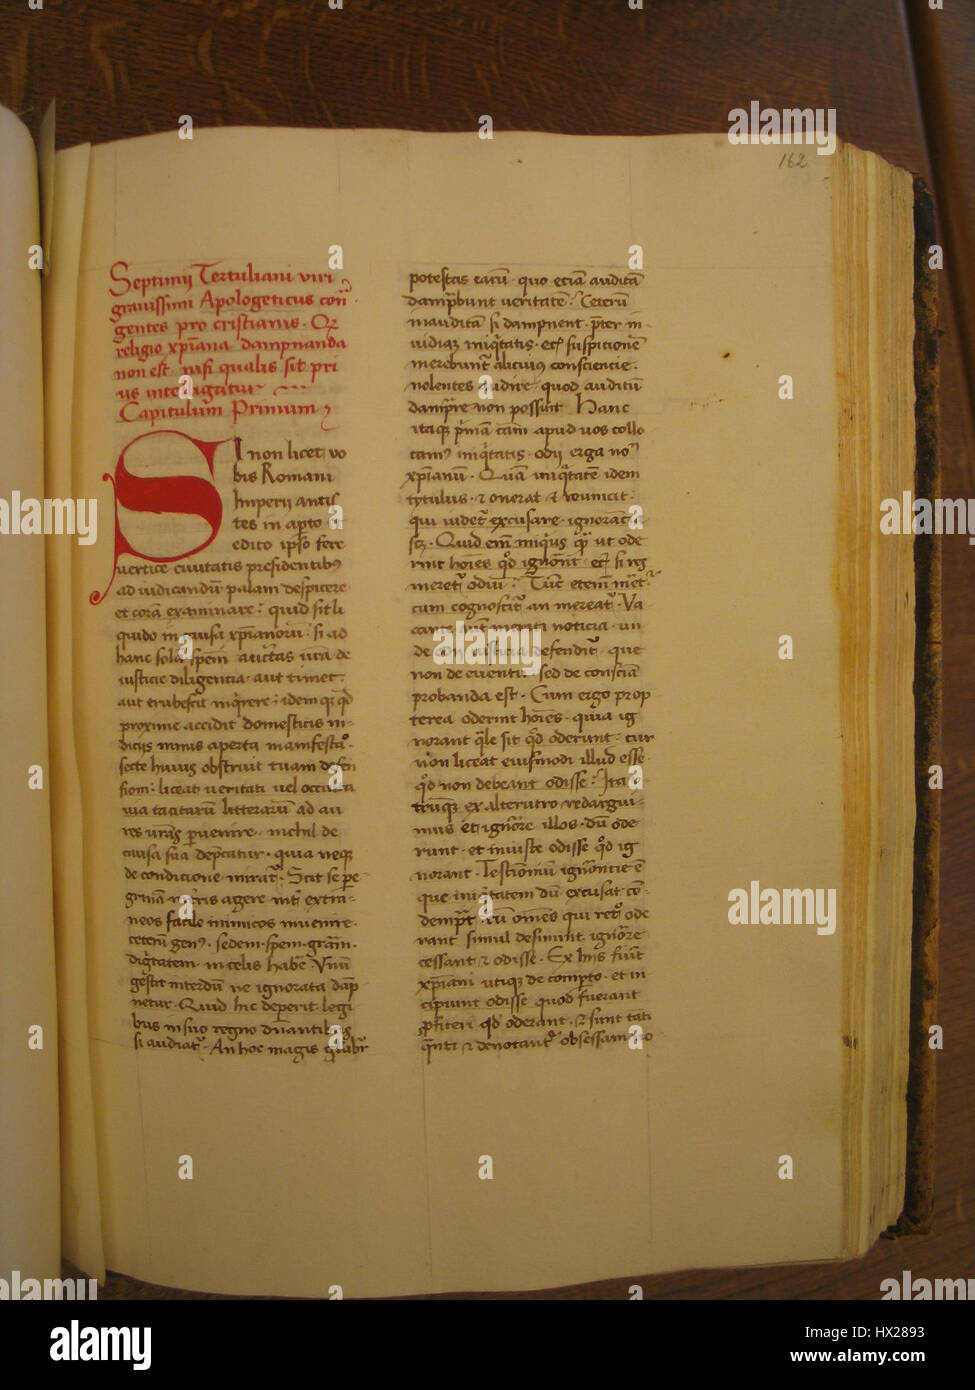 162
Septimij Tertuliani viri
grauissimi Apologeticus con̄
gentes pro cristianis · Qr
religio xp̄iana dampnanda
non est · nisi qualis sit pri
us intelligatur
Capitulum Primum
SI non licet vo
bis Romani
Imperij antis
tes in apto
edito ipso fere
vertice ciuitatis presidentibꝫ
ad iudicandū palam despicere
et corā examinare · quid sit li
quido in causa xp̄ianorū · si ad
hanc solā spēm auctītas v̄ra de
iusticie diligencia · aut timet ·
aut erubescit inq̇rere · idem
proxime accidit domesticis in-
dicijs nimis aperta manifesta
secte huius obstruit
siom · liceat veritati vel occulta
via tacitarū litterarū ad au
res vr̄as p̱uenire · nichil de
causa sua dep̄catur · quia neqꝫ
de condicione mirat᷑ · Scit se pe-
grinā in terris agere int᷑ extra-
neos facile inimicos inuenire ·
ceterū genꝰ · sedem · spem · grām ·
dignitatem · in celis habē Vnū
gestit interdū ne ignorata dāp
netur · Quid hic deperit · legi
bus in suo regno
si audiat᷑ · An hoc magis
potestas earū · quo eciam auditā
damp̄bunt veritatē · Ceterū
inauditā si dampnent · p̄ter in-
vidiaꝫ iniq̇tatis · et suspitionē
merebunt᷑ alicuiꝰ consciencie
nolentes audire · quod auditū
damp̄re non possunt Hanc
itaqꝫ ṗmā cām apud vos collo
camꝰ iniq̇tatis · odij erga nom̄
xp̄ianū · Quā iniq̇tatē idem
tytulus · & onerat & reuincit ·
qui videt᷑ excusare · ignorācia
scꝫ · Quid em̄ iniqiꝰ q̄ꝫ ut ode
rint hoīes qd̄ ignorāt · et si res
meret᷑ odiū · Tūc etenī
cum cognoscit᷑ an mereat᷑ · Va
cante meriti noticia · vn
de odij iusticia defendit᷑ · que
non de euentu · sed de consciā
probanda est · Cum ergo prop
terea oderint hoīes · quia ig
norant q̄le sit qd̄ oderunt · cur
non liceat eiusmodi illud esse ·
qd̄ non debeant odisse · Ita
trūqꝫ ex alterutro redargui-
mus et ignōre illos · dū ode
runt · et iniuste odisse qd̄ ig
norant · Testimoniū ignorācie ē
que iniq̇tatem dū excusat · cō-
dempn̄t · cū omēs qui ret᷑o ode
rant simul desinunt ignorāre
cessant & odisse · Ex hijs fiūt
xp̄iani vtiqꝫ de compto · et in
cipiunt odisse quod fuerant
ꝓfiteri qd̄ oderant · & sunt tāti
q̄nti & denotant᷑ obsessam
alamy
Image ID: HX2893
www.alamy.com